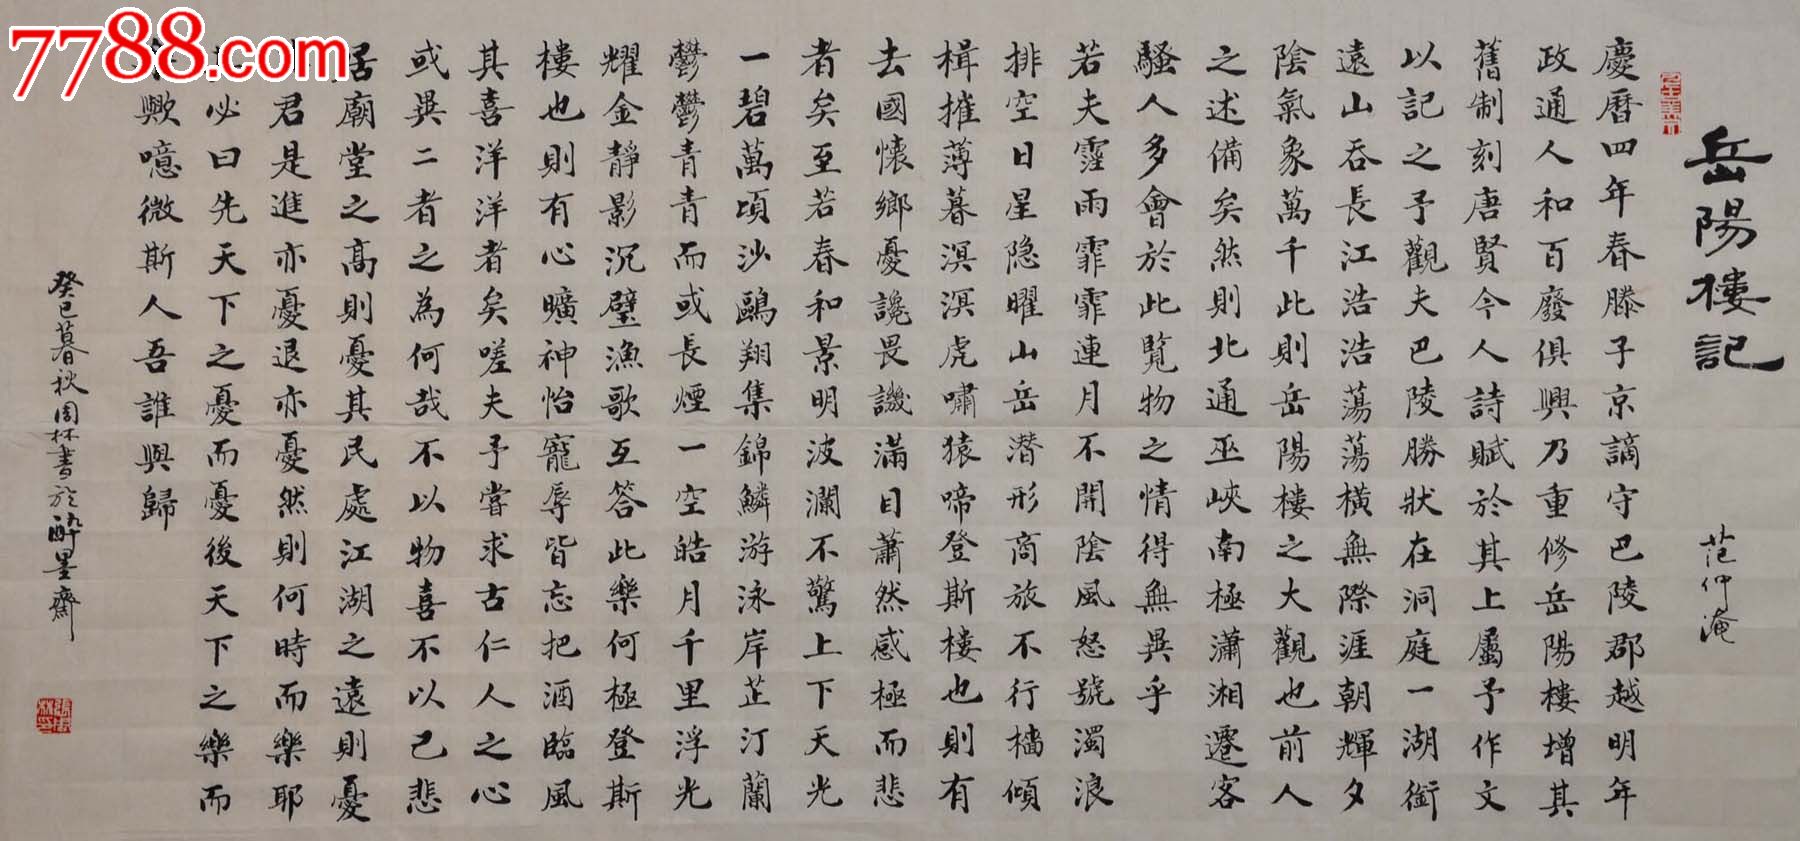 7788.com
岳陽樓記
范仲淹
慶曆四年春滕子京謫守巴陵郡越明年
政通人和百廢俱興乃重修岳陽樓增其
舊制刻唐賢今人詩賦於其上屬予作文
以記之予觀夫巴陵勝狀在洞庭一湖銜
遠山吞長江浩浩蕩蕩橫無際涯朝輝夕
陰氣象萬千此則岳陽樓之大觀也前人
之述備矣然則北通巫峽南極瀟湘遷客
騷人多會於此覽物之情得無異乎
若夫霪雨霏霏連月不開陰風怒號濁浪
排空日星隐曜山岳潛形商旅不行檣傾
楫摧薄暮溟溟虎嘯猿啼登斯樓也則有
去國懷鄉憂讒畏譏滿目蕭然感極而悲
者矣至若春和景明波瀾不驚上下天光
一碧萬頃沙鷗翔集錦鱗游泳岸芷汀蘭
鬱鬱青青而或長煙一空皓月千里浮光
耀金靜影沉璧漁歌互答此樂何極登斯
樓也則有心曠神怡寵辱皆忘把酒臨風
其喜洋洋者矣嗟夫予嘗求古仁人之心
或異二者之為何哉不以物喜不以己悲
居廟堂之高則憂其民處江湖之遠則憂
君是進亦憂退亦憂然則何時而樂耶
必曰先天下之憂而憂後天下之樂而
歟噫微斯人吾誰與歸
癸巳暮秋周林書於醉墨齋